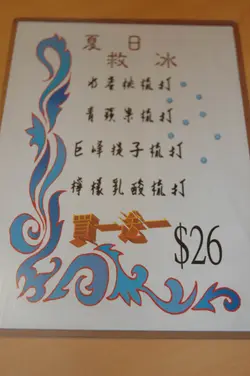 夏日
救冰
水蜜桃梳打
青蘋果梳打
巨峰提子梳打
檸檬乳酸梳打
買一送一
$26